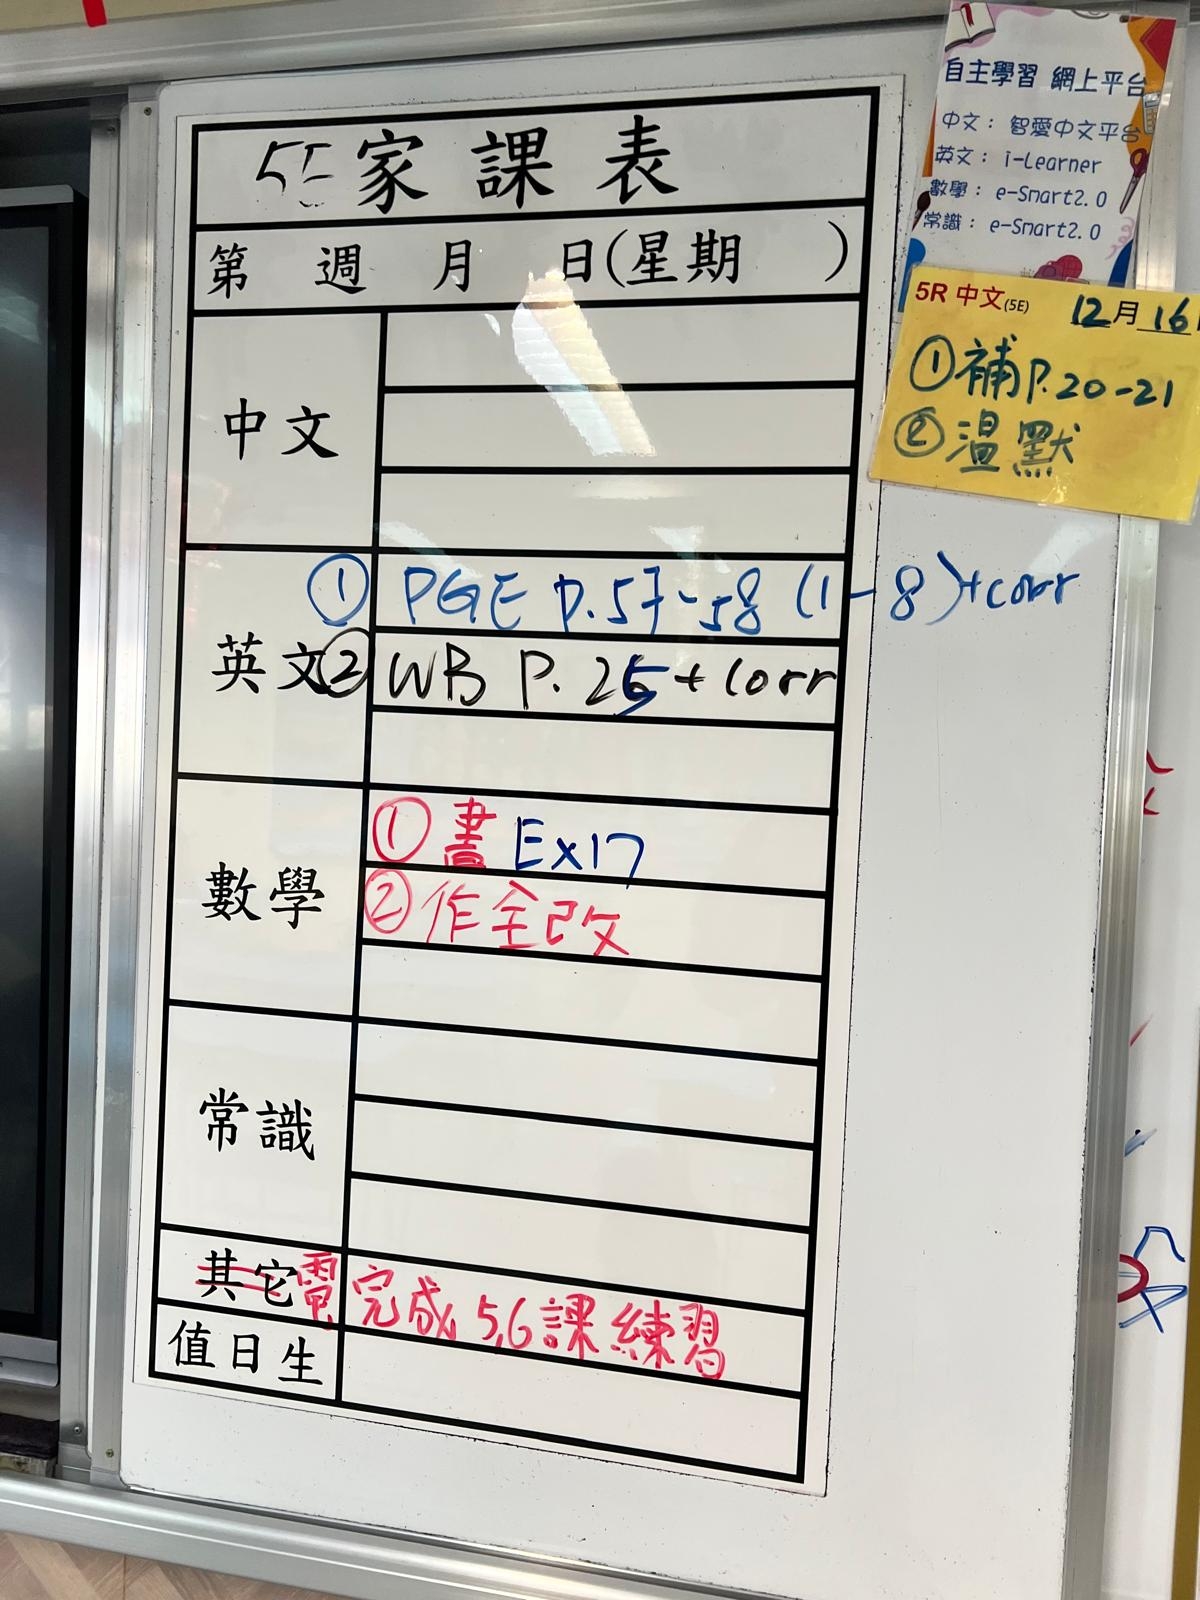 5E家課表
第 週 月 日(星期 )
中文
英文
① PGE P.57-58 (1-8)+corr
② WB P.25+corr
數學
① 書 Ex17
② 作全改
常識
其它電 完成5,6課練習
值日生
自主學習 網上平台
中文： 智愛中文平台
英文： i-Learner
數學： e-Smart2.0
常識： e-Smart2.0
5R 中文(5E) 12月16
①補P.20-21
②溫默